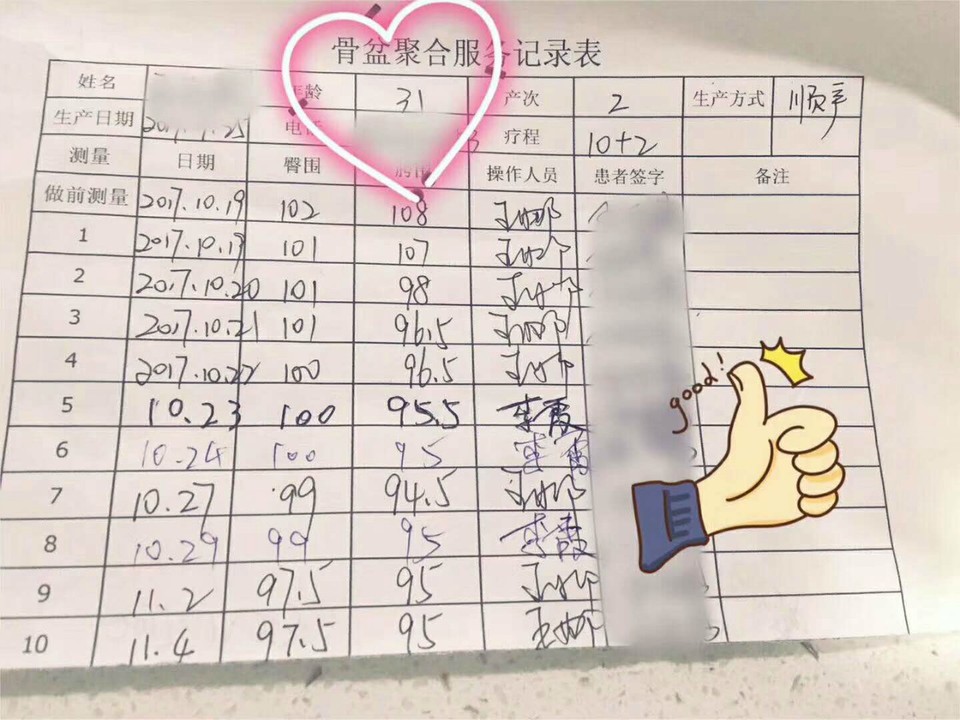 骨盆聚合服务记录表
姓名 年龄 31 产次 2 生产方式 顺产
生产日期 电话 疗程 10+2
测量 日期 臀围 胸围 操作人员 患者签字 备注
做前测量 2017.10.19 102 108 王娜
1 2017.10.19 101 107
2 2017.10.20 101 98
3 2017.10.21 101 96.5 王娜
4 2017.10.22 100 96.5
5 10.23 100 95.5 李霞
6 10.24 100 95 李霞
7 10.27 99 94.5 王娜
8 10.29 99 95 李霞
9 11.2 97.5 95 王娜
10 11.4 97.5 95 王娜
good!!